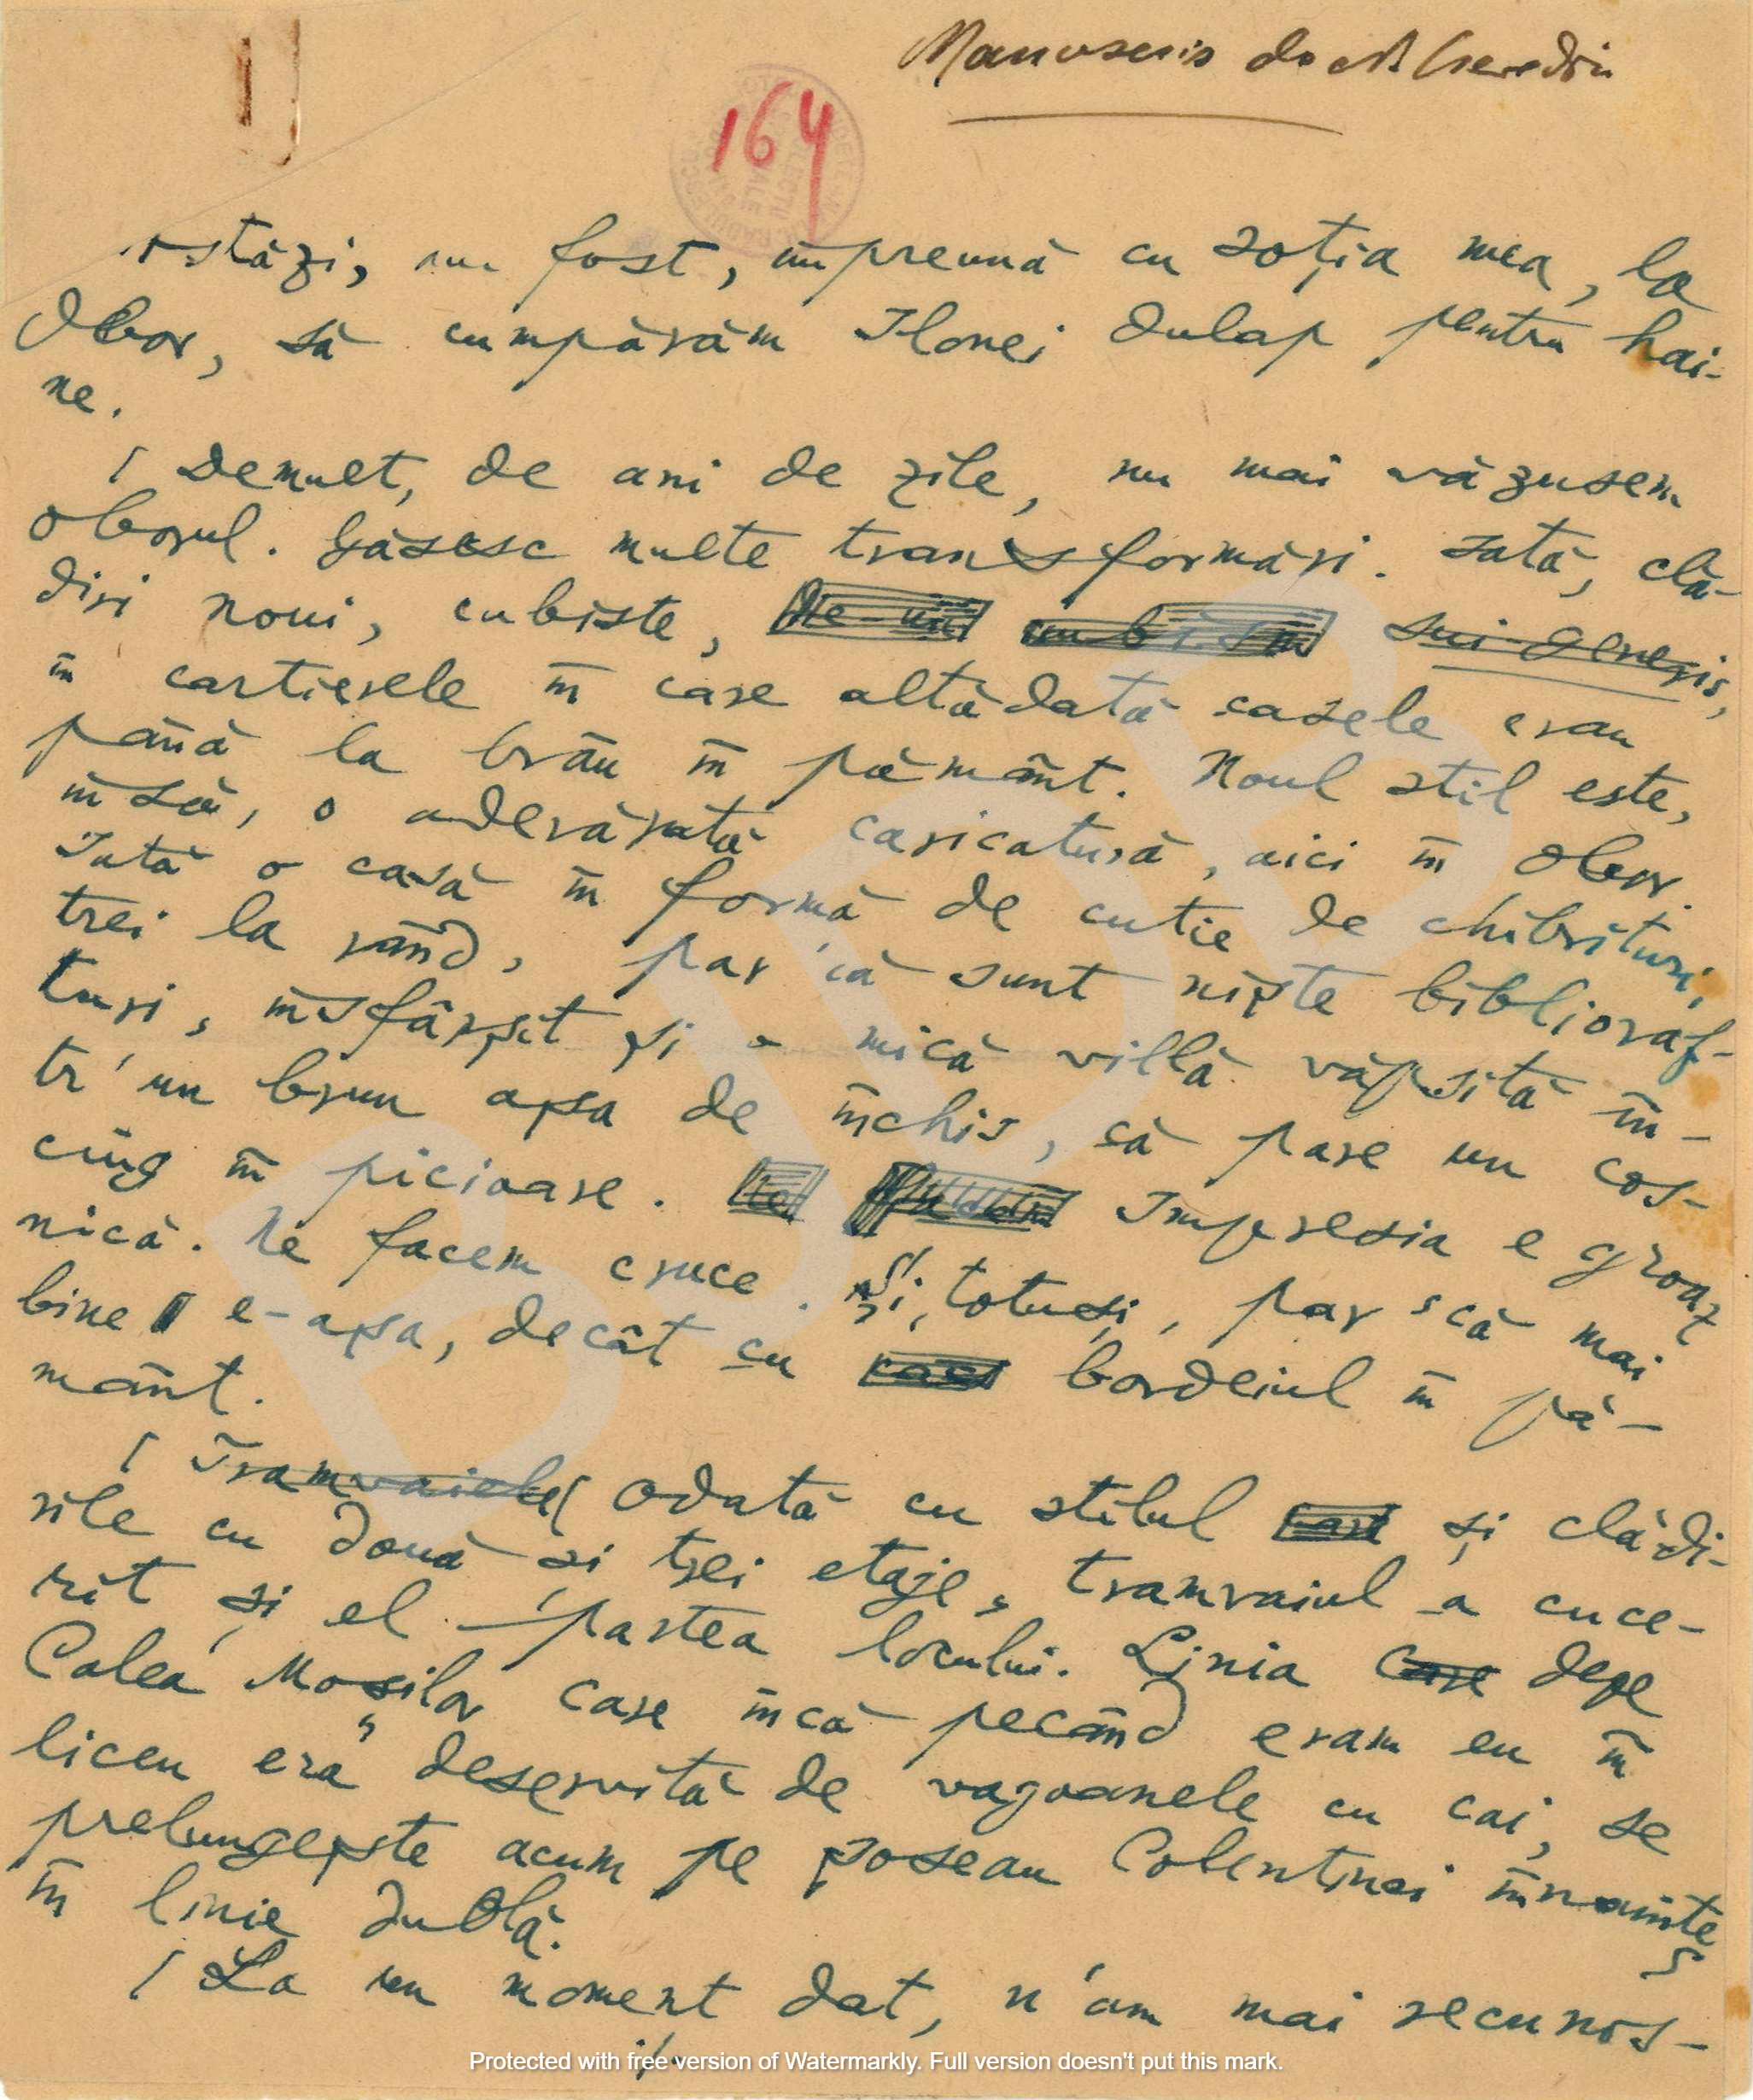 Manuscris de
164
Astăzi, am fost, împreună cu soția mea, la
Obor, să cumpărăm Ilonei dulap pentru hai-
ne.
Demult, de ani de zile, nu mai văzusem
oborul. Găsesc multe transformări. Iată, clă-
diri noui, cubiste, sui generis,
în cartierele în care altădată casele erau
până la brâu în pământ. Noul stil este,
însă, o adevărată caricatură, aici în Obor.
Iată o casă în formă de cutie de chibrituri,
trei la rând, par'că sunt niște biblioraf-
turi, însfârșit și o mică villă văpsită în-
tr'un brun așa de închis, că pare un coș-
ciug în picioare. Impresia e groaz
nică. Ne facem cruce. Și, totuși, par'că mai
bine e-așa, decât cu bordeiul în pă-
mânt.
Tramvaiele Odată cu stilul și clădi-
rile cu două și trei etaje, tramvaiul a cuce-
rit și el partea locului. Linia care depe
Calea Moșilor care încă pecând eram eu în
liceu era deservită de vagoanele cu cai, se
prelungește acum pe șoseau Colentinei înnainte,
în linie dublă.
La un moment dat, n'am mai recunos-
./.
B J D B
Protected with free version of Watermarkly. Full version doesn't put this mark.